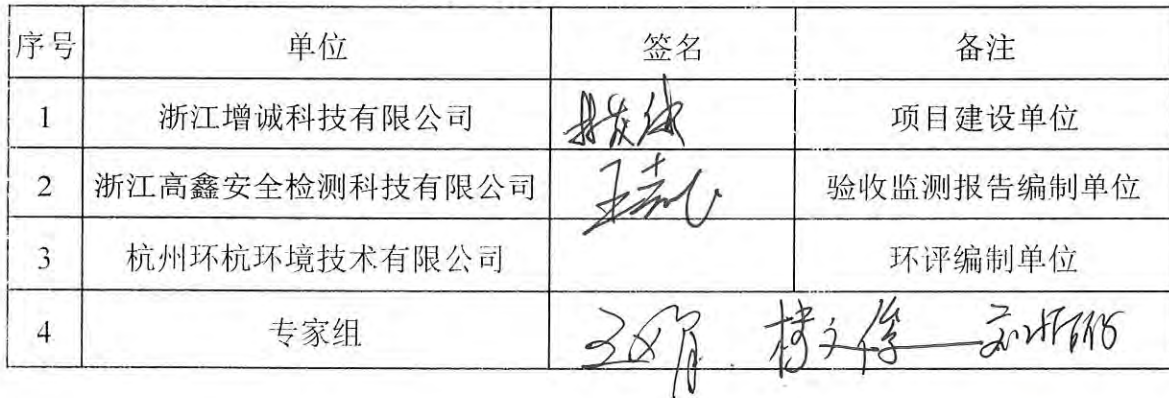 序号 单位 签名 备注
1 浙江增诚科技有限公司 项目建设单位
2 浙江高鑫安全检测科技有限公司 验收监测报告编制单位
3 杭州环杭环境技术有限公司 环评编制单位
4 专家组